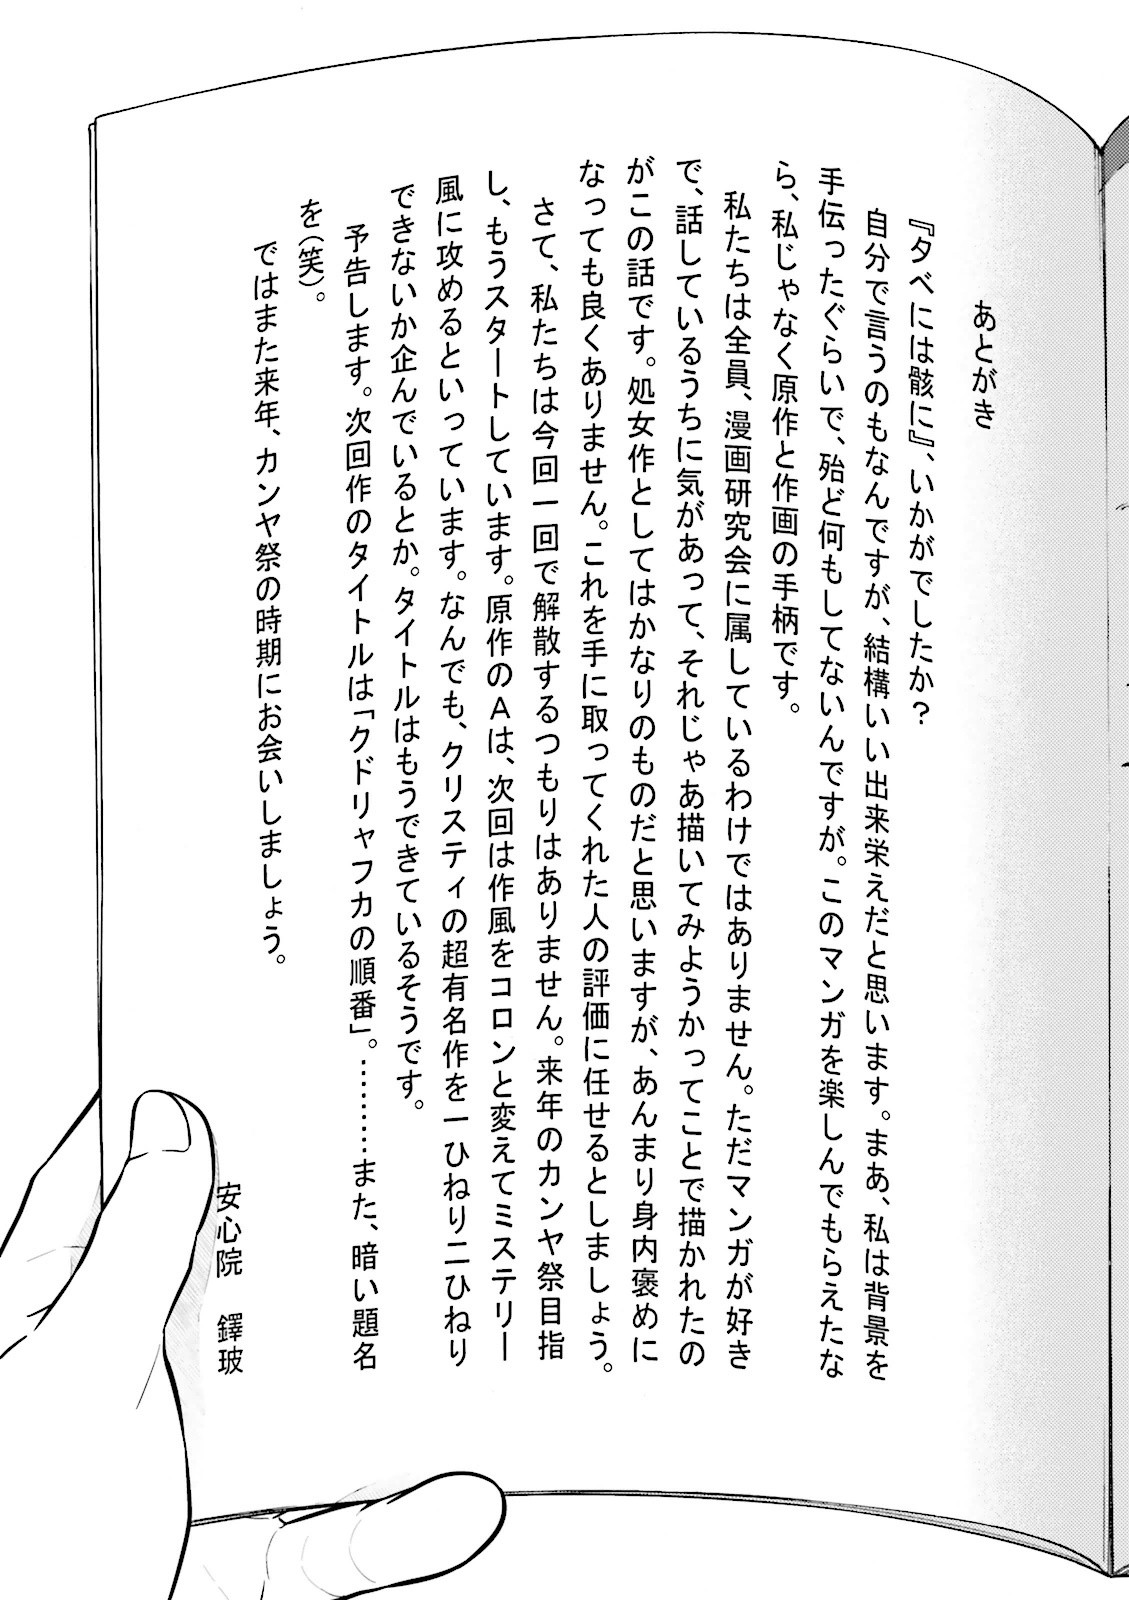 あとがき
『夕べには骸に』、いかがでしたか？
自分で言うのもなんですが、結構いい出来栄えだと思います。まあ、私は背景を
手伝ったぐらいで、殆ど何もしてないんですが。このマンガを楽しんでもらえたな
ら、私じゃなく原作と作画の手柄です。
私たちは全員、漫画研究会に属しているわけではありません。ただマンガが好き
で、話しているうちに気があって、それじゃあ描いてみようかってことで描かれたの
がこの話です。処女作としてはかなりのものだと思いますが、あんまり身内褒めに
なっても良くありません。これを手に取ってくれた人の評価に任せるとしましょう。
さて、私たちは今回一回で解散するつもりはありません。来年のカンヤ祭目指
し、もうスタートしています。原作のＡは、次回は作風をコロンと変えてミステリー
風に攻めるといっています。なんでも、クリスティの超有名作を一ひねり二ひねり
できないか企んでいるとか。タイトルはもうできているそうです。
予告します。次回作のタイトルは「クドリャフカの順番」。………また、暗い題名
を（笑）。
ではまた来年、カンヤ祭の時期にお会いしましょう。
安心院　鐸玻